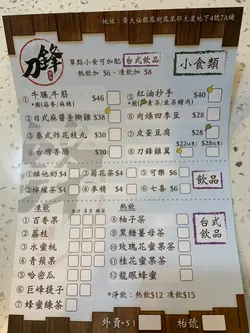 地址：黃大仙飛鳳街鳳凰邨大廈地下4號7A舖
刀鋒
單點小食可加配 台式飲品
熱飲加 $6 · 凍飲加 $8
小食類
① 牛腩,牛筋 $46
② 日式麻醬手撕雞 $38
③ 泰式炸花枝丸 $30
④ 台灣香腸
⑤ 紅油抄手 $40
⑥ 肉燥四季豆
⑦ 皮蛋豆腐
⑧ 刀鋒雞翼
① 維他奶 $4
② 檸檬茶 $4
③ 菊花茶 $4
④ 麥精 $4
⑤ 可樂 $6
⑥ 七喜 $6
飲品
凍飲：
① 百香果
② 荔枝
③ 水蜜桃
④ 青蘋果
⑤ 哈密瓜
⑥ 巨峰提子
⑦ 蜂蜜綠茶
熱飲：
⑧ 柚子茶
⑨ 黑糖薑母茶
⑩ 玫瑰花蜜果茶
⑪ 桂花蜜果茶
⑫ 龍眼蜂蜜
台式飲品
*淨飲：熱飲$12 凍飲$15
外賣+$1
枱號